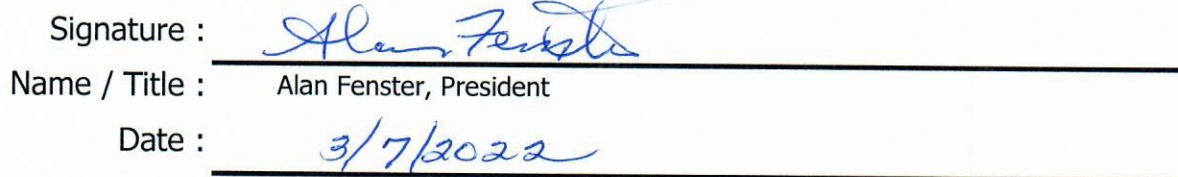 Signature : Alan Fenster
Name / Title : Alan Fenster, President
Date : 3/7/2022